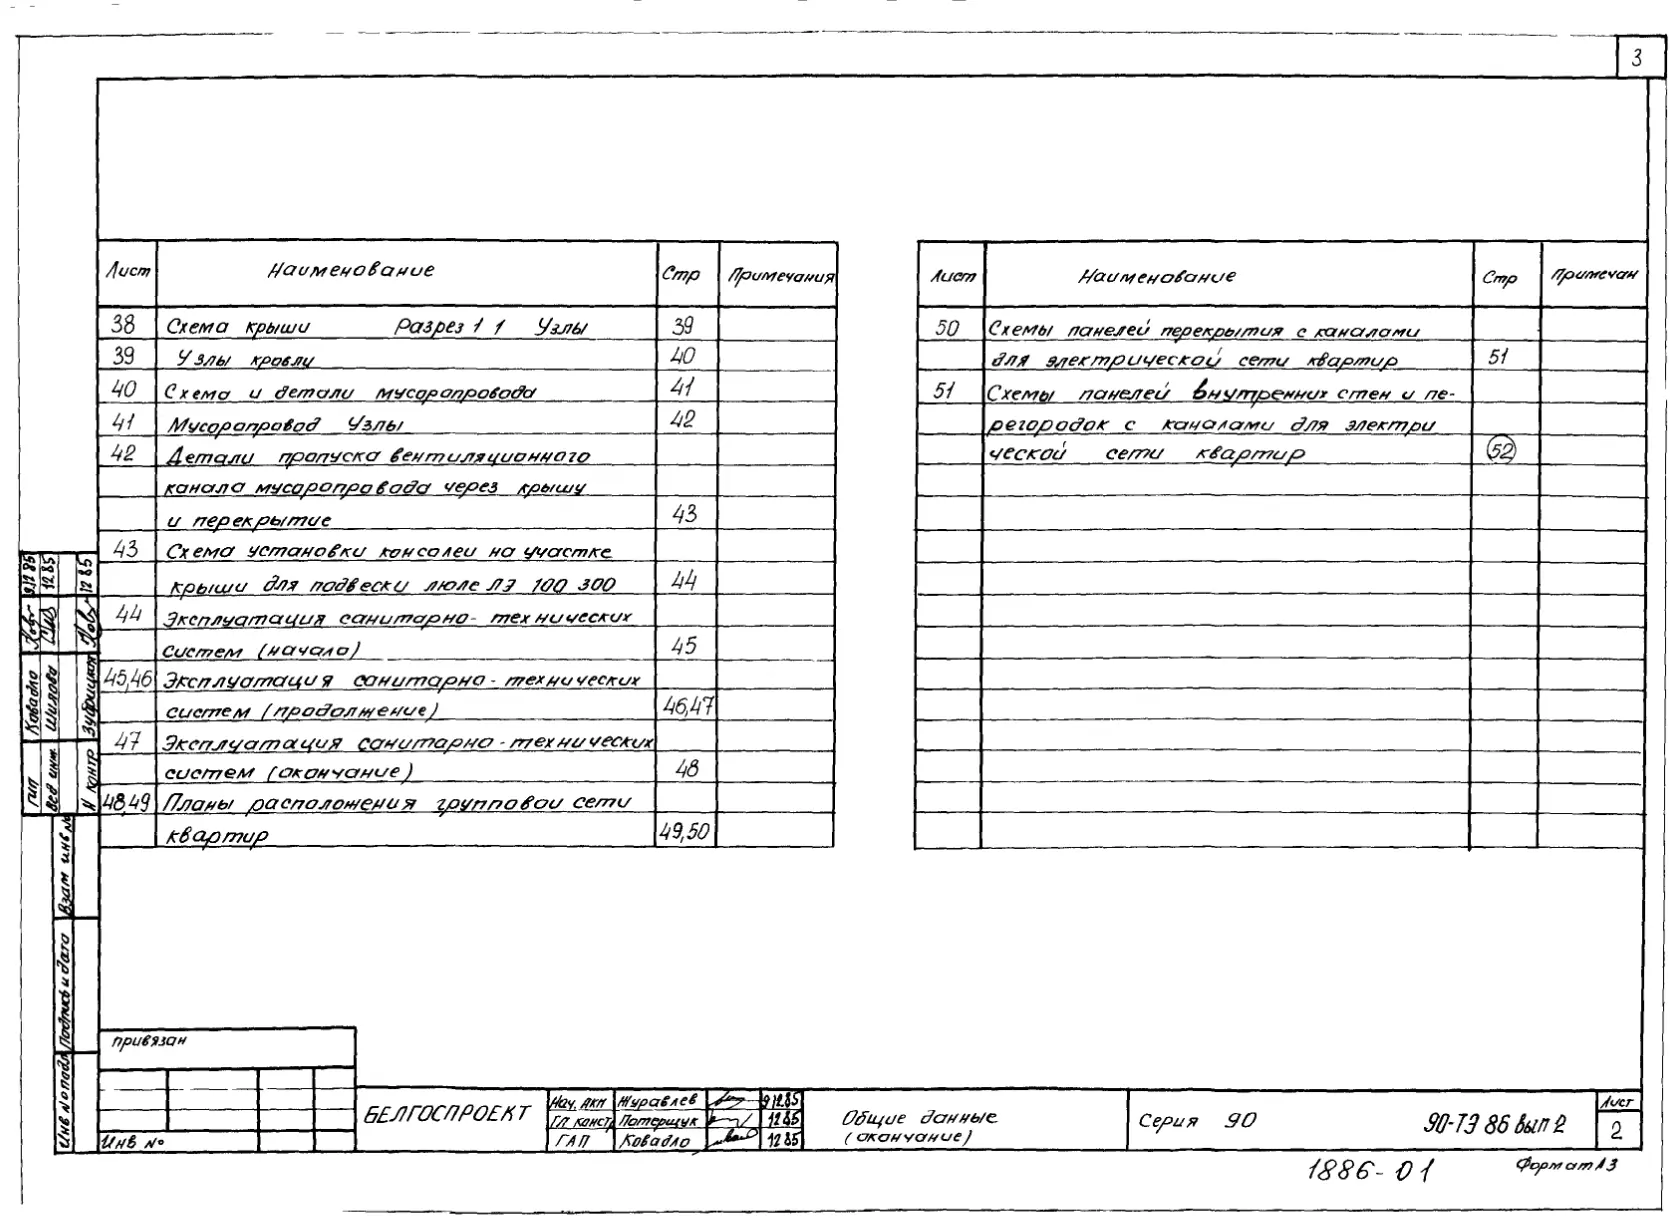 3
Лист Наименование Стр Примечания
38 Схема крыши Разрез 1 1 Узлы 39
39 Узлы кровли 40
40 Схема и детали мусоропровода 41
41 Мусоропровод Узлы 42
42 Детали пропуска вентиляционного
канала мусоропровода через крышу
и перекрытие 43
43 Схема установки консолеи на участке
крыши для подвески люле ЛЭ 100 300 44
44 Эксплуатация санитарно- технических
систем (начало) 45
45,46 Эксплуатация санитарно - технических
систем (продолжение) 46,47
47 Эксплуатация санитарно - технических
систем (окончание) 48
48,49 Планы расположения групповои сети
квартир 49,50
Лист Наименование Стр Примечан
50 Схемы панелей перекрытия с каналами
для электрической сети квартир 51
51 Схемы панелей внутренних стен и пе-
регородок с каналами для электри
ческой сети квартир 52
ГИП Ковадло 9.12 85
Вед инж Шилова 12 85
Н контр 12 85
Взам инв №
Подпись и дата
Инв № подл
привязан
Инв №
БЕЛГОСПРОЕКТ
Нач. АКМ Журавлев 9 12.85
Гл. констр Потерщук 12 85
ГАП Ковадло 12 85
Общие данные
(окончание)
Серия 90
90-ТЭ 86 вып 2
Лист
2
1886-01
Формат А3